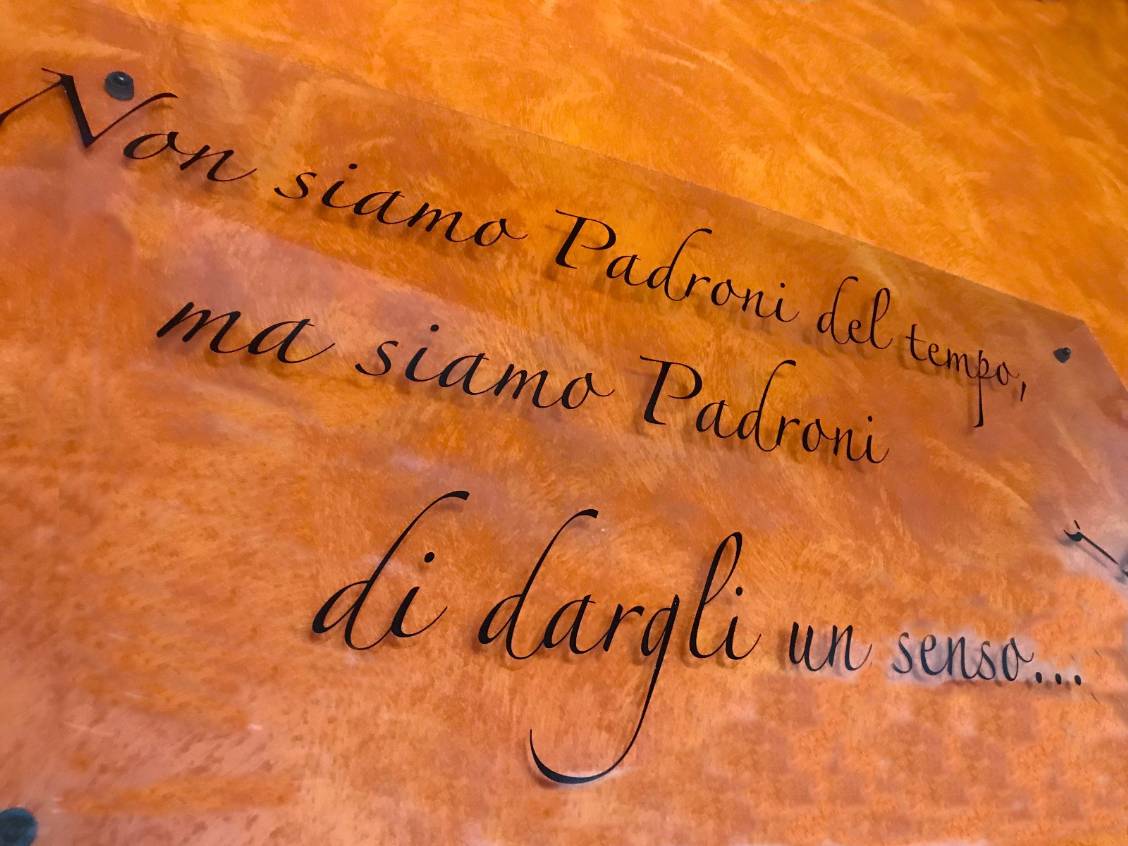 Non siamo Padroni del tempo,
ma siamo Padroni
di dargli un senso....